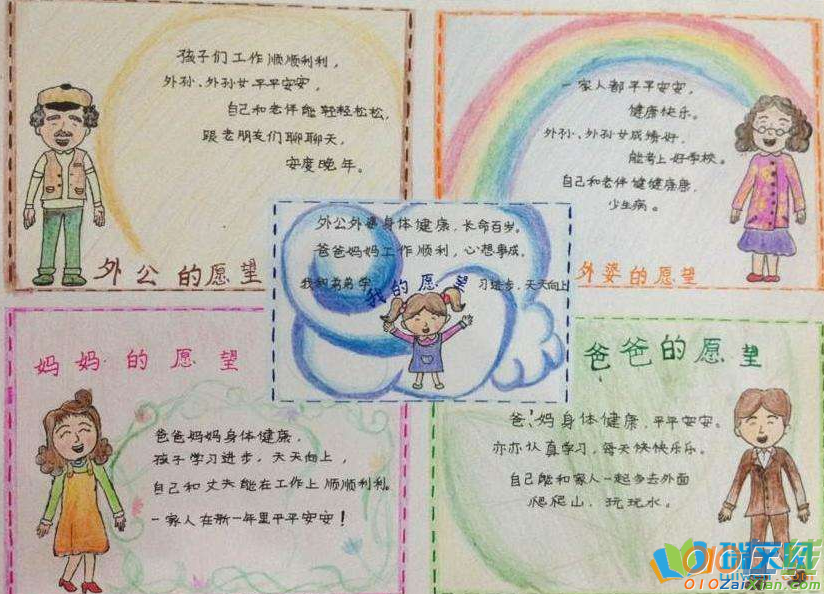 孩子们工作顺顺利利，
外孙、外孙女平平安安，
自己和老伴能轻轻松松，
跟老朋友们聊聊天，
安度晚年。
外公的愿望
一家人都平平安安，
健康快乐。
外孙、外孙女成绩好，
能考上好学校。
自己和老伴健健康康，
少生病。
外婆的愿望
外公外婆身体健康，长命百岁。
爸爸妈妈工作顺利，心想事成。
我和弟弟学习进步，天天向上
我的愿望
妈妈的愿望
爸爸妈妈身体健康，
孩子学习进步，天天向上，
自己和丈夫能在工作上顺顺利利。
一家人在新一年里平平安安！
爸爸的愿望
爸、妈身体健康，平平安安。
亦亦认真学习，每天快快乐乐。
自己能和家人一起多去外面
爬爬山，玩玩水。
010ZaiXian.com